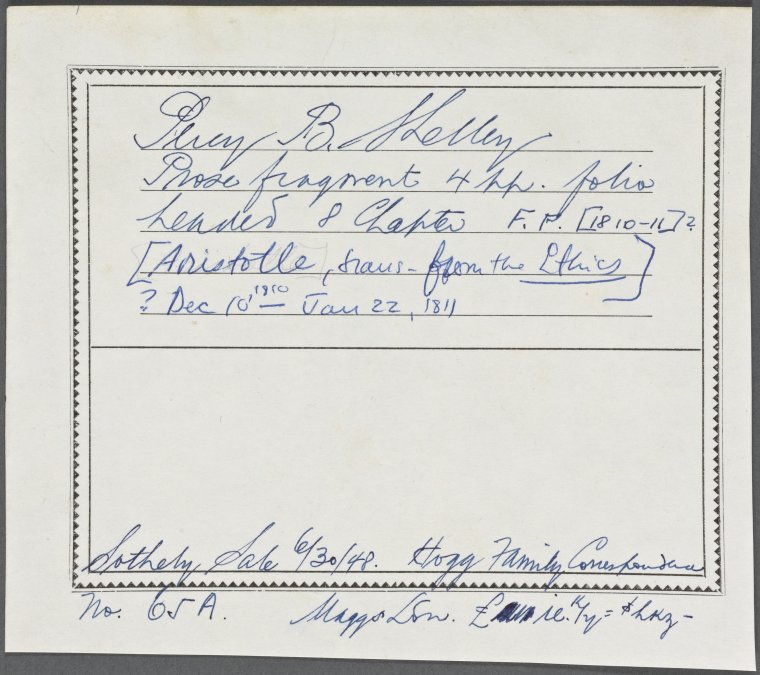 Percy B. Shelley
Prose fragment 4 pp. folio
headed 8 Chapter F.P. [1810-11]?
[Aristotle, trans- from the Ethics]
? Dec 10, 1910 — Jan 22, 1811
Sotheby Sale 6/30/48. Hogg Family Correspondence
No. 65A. Maggs Lon. £